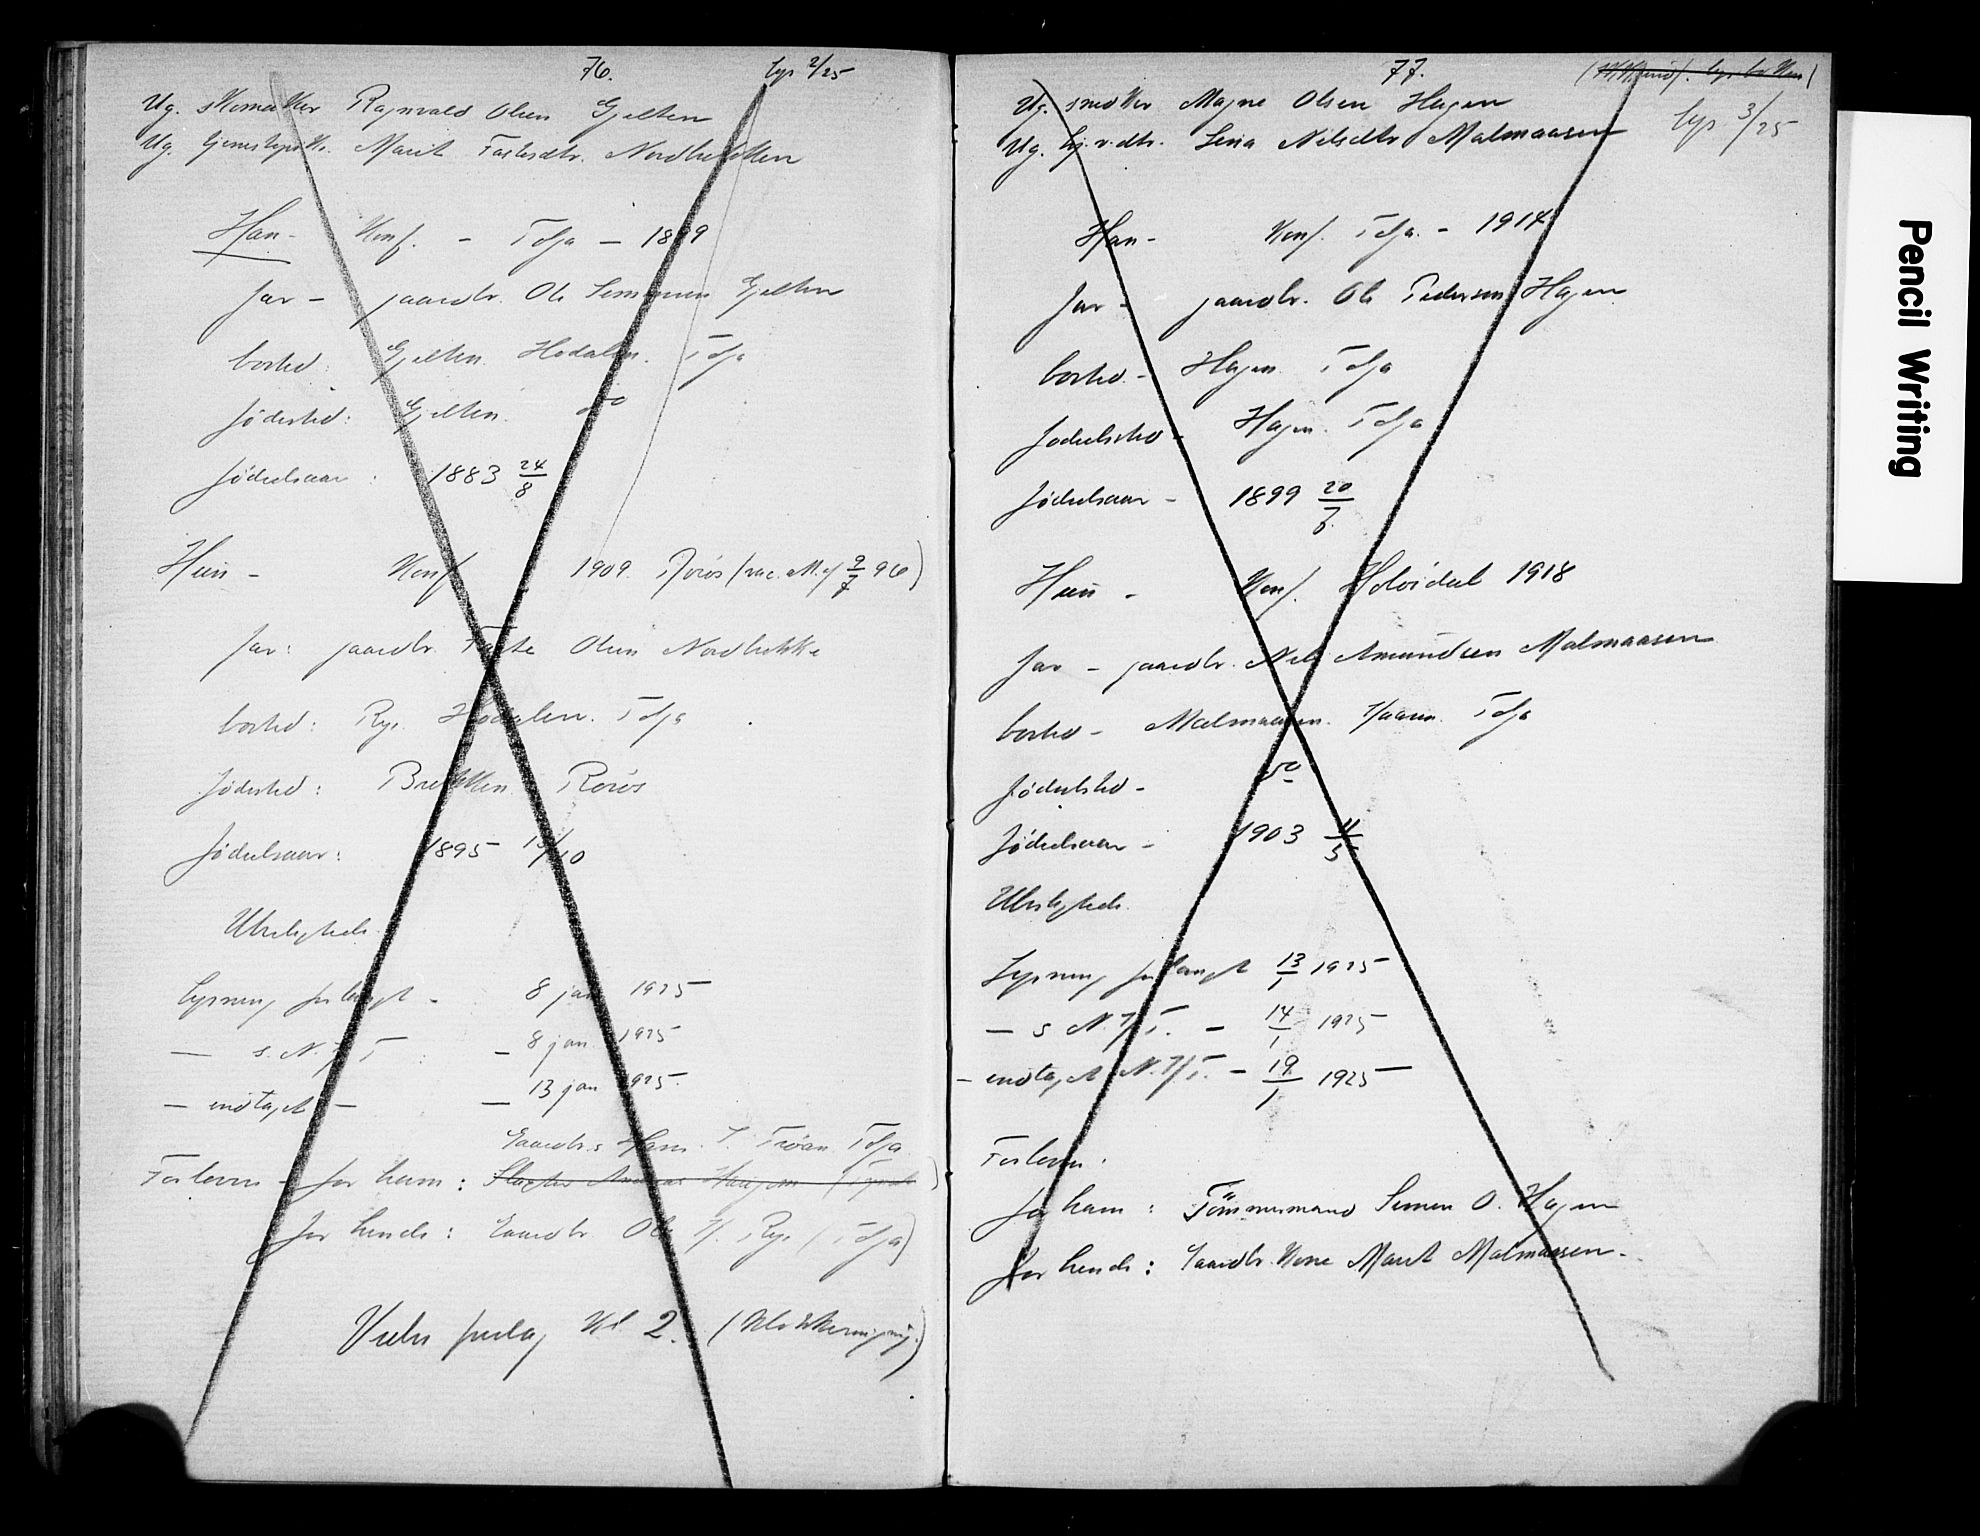 76.
lys 2/25
Ug. skomakker Ragnvald Olsen Gjelten
Ug. tjenestepike Marit Fastesdtr. Nordbekken
Han - Konf. - Tolga - 1899
far - gaardbr. Ole Simensen Gjelten
bosted: Gjelten Hodalen. Tolga
fødested: Gjelten. do
fødselsaar: 1883 24/8
Hun - Konf 1909. Røros (vac. att. af 9/7 96)
far: gaardbr. Faste Olsen Nordbekke
bosted: Rye. Hodalen. Tolga
fødested: Brekken Røros
fødselsaar: 1895 13/10
Ubeslegtede
Lysning forlangt - 8 jan 1925
— s. N. T - 8 jan 1925
— indtaget - — 13 jan 1925.
Gaardbr. Hans Trøan Tolga
Forlovere - for ham: Slagter Haagen
for hende: Gaardbr Ole Rye (Tolga)
Vies fredag Kl 2. (Klokkeringning)
77.
lys. 3/25
Ug. snedker Magne Olsen Hagen
Ug. Lena Nilsdtr Malmaasen
Han - Konf. Tolga. - 1914
far - gaardbr. Ole Pedersen Hagen
bosted - Hagen Tolga
fødested - Hagen. Tolga
fødselsaar - 1899 20/6
Hun - Konf. Holøidal 1918
far - gaardbr. Nils Amundsen Malmaasen
bosted - Malmaasen. Vaarn. Tolga
fødested - do
fødselsaar - 1903 11/5
Ubeslegtede.
Lysning forlangt 13/1 1925
— s N. T. - 14/1 1925
- indtaget N. T. - 19/1 1925
Forlovere.
for ham: Tömmermand Simen O. Hagen
for hende: Gaardbr. Kone Marit Malmaasen.
Pencil Writing